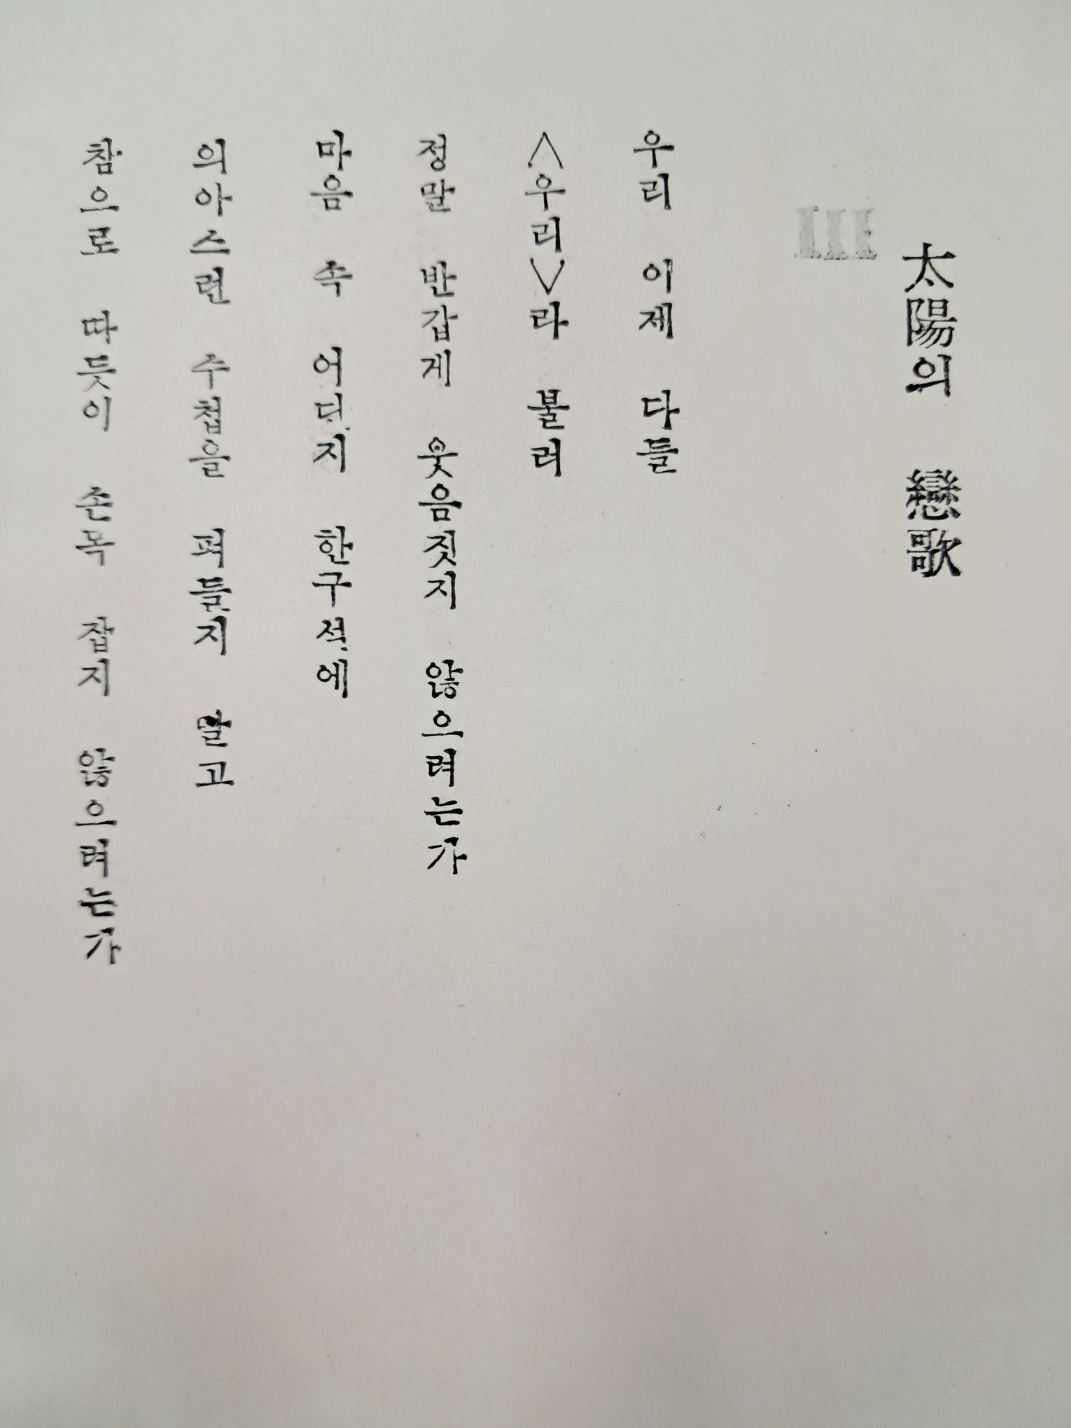 太陽의 戀歌
III
우리 이제 다들
<우리>라 불러
정말 반갑게 웃음짓지 않으려는가
마음 속 어딘지 한구석에
의아스런 수첩을 펴들지 말고
참으로 따듯이 손목 잡지 않으려는가